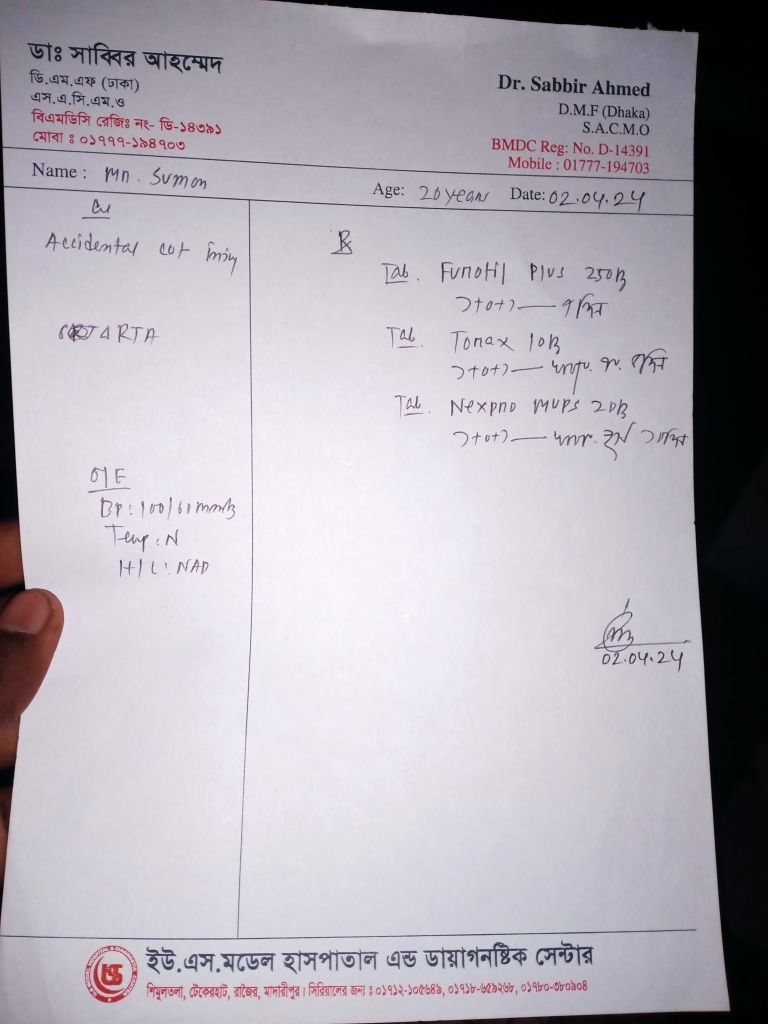 ডাঃ সাব্বির আহম্মেদ
ডি.এম.এফ (ঢাকা)
এস.এ.সি.এম.ও
বিএমডিসি রেজিঃ নং- ডি-১৪৩৯১
মোবা : ০১৭৭৭-১৯৪৭০৩
Dr. Sabbir Ahmed
D.M.F (Dhaka)
S.A.C.M.O
BMDC Reg: No. D-14391
Mobile : 01777-194703
Name : Mr. Sumon Age: 20 years Date: 02.04.24
Accidental cut
RTA
O/E
BP: 100/60 mmHg
Temp: N
H/L: NAD
Rx
Tab. Plus 250
১+০+১ —
Tab. Tonax 10
১+০+১ —
Tab. MUPS 20
১+০+১ —
02.04.24
ইউ.এস.মডেল হাসপাতাল এন্ড ডায়াগনষ্টিক সেন্টার
শিমুলতলা, টেকেরহাট, রাজৈর, মাদারীপুর। সিরিয়ালের জন্য : ০১৯১২-১০৫৬৪৯, ০১৭১৮-৬৫৯২৬৮, ০১৭৮০-৩৮০৯০৪